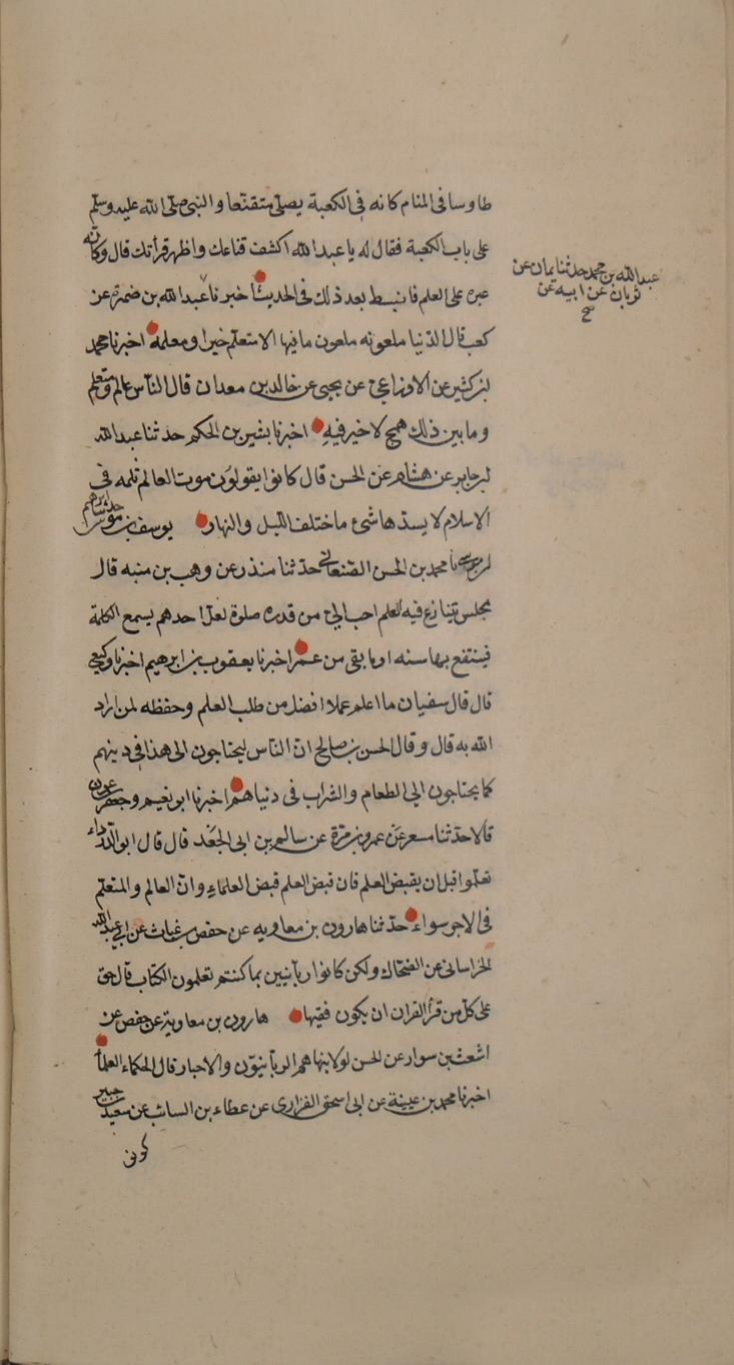 طاوسا فى المنام كانه فى الكعبة يصلى متقنعا والنبى صلى الله عليه وسلم
على باب الكعبة فقال له يا عبد الله اكشف قناعك واظهر قرأتك قال وكانه
عبره على العلم فانبسط بعد ذلك فى الحديث اخبرنا عبد الله بن ضمرة عن
عبد الله بن محمد حدثنا يمان عن
ثوبان عن ابيه عن
صح
كعب قال الدنيا ملعونه ملعون ما فيها الا متعلم خيرا ومعلمه اخبرنا محمد
بن كثير عن الاوزاعى عن يحيى عن خالد بن معدان قال الناس عالم ومتعلم
وما بين ذلك همج لا خير فيه اخبرنا بشير بن الحكم حدثنا عبد الله
بن جابر عن هشام عن الحسن قال كانوا يقولون موت العالم ثلمه فى
الاسلام لا يسدها شئ ما ختلف الليل والنهار يوسف بن موسى
حدثنا ابراهيم
محمد بن الحسن الصنعانى حدثنا منذر عن وهب بن منبه قال
مجلس يتنازع فيه العلم احب الى من قدره صلوة لعل احدهم يسمع الكلمة
فينتفع بها سنه او ما بقى من عمره اخبرنا يعقوب بن ابرهيم اخبرنا وكيع
قال قال سفيان ما اعلم عملا افضل من طلب العلم وحفظه لمن اراد
الله به قال وقال الحسن بن صالح ان الناس ليحتاجون الى هذا فى دينهم
كما يحتاجون الى الطعام والشراب فى دنياهم اخبرنا ابو نعيم وجعفر بن عون
قالا حدثنا مسعر عن عمرو بن مرة عن سالم بن ابى الجعد قال قال ابو الدرداء
تعلموا قبل ان يقبض العلم فان قبض العلم قبض العلماء وان العالم والمتعلم
فى الاجر سواء حدثنا هارون بن معاويه عن حفص بن غياث عن ابى عبد الله
الخراسانى عن الضحاك ولكن كانوا ربانيين بما كنتم تعلمون الكتاب قال حق
على كل من قرأ القران ان يكون فقيها هارون بن معاوية عن حفص عن
اشعث بن سوار عن الحسن لولا ينهاهم الربانيون والاحبار قال الحكماء العلمأ
اخبرنا محمد بن عيينة عن ابى اسحق الفزارى عن عطاء بن السائب عن سعيد بن جبير
كونى